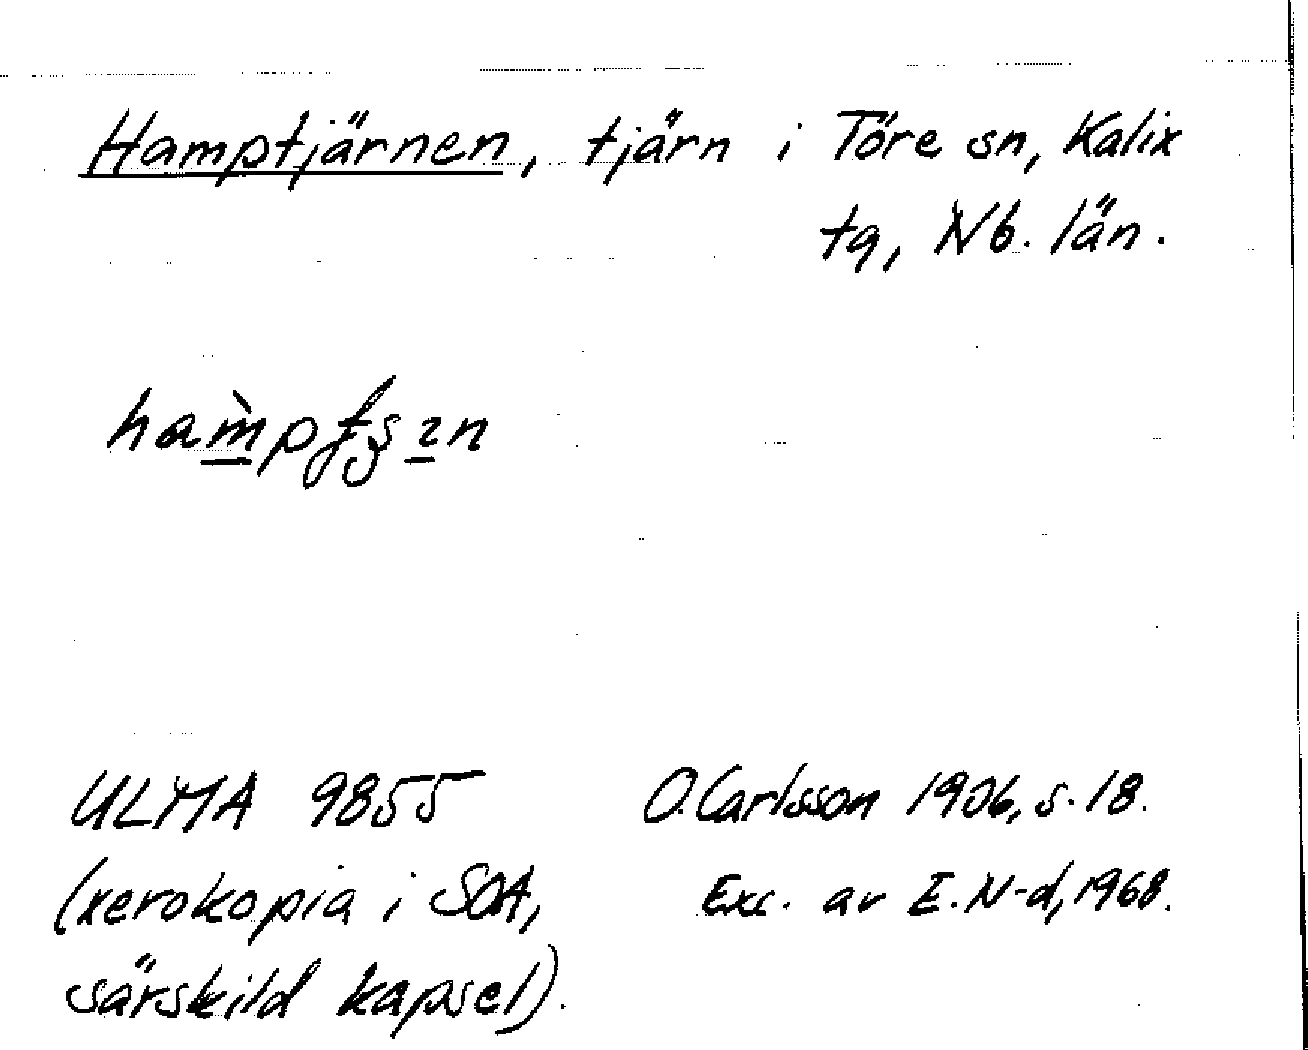 Hamptjärnen, tjärn i Töre sn, Kalix
tg, Nb. län.
ULMA 9855
O. Carlsson 1906, s. 18.
(xerokopia i SOA,
Exc. av E. N-d, 1968.
särskild kapsel).